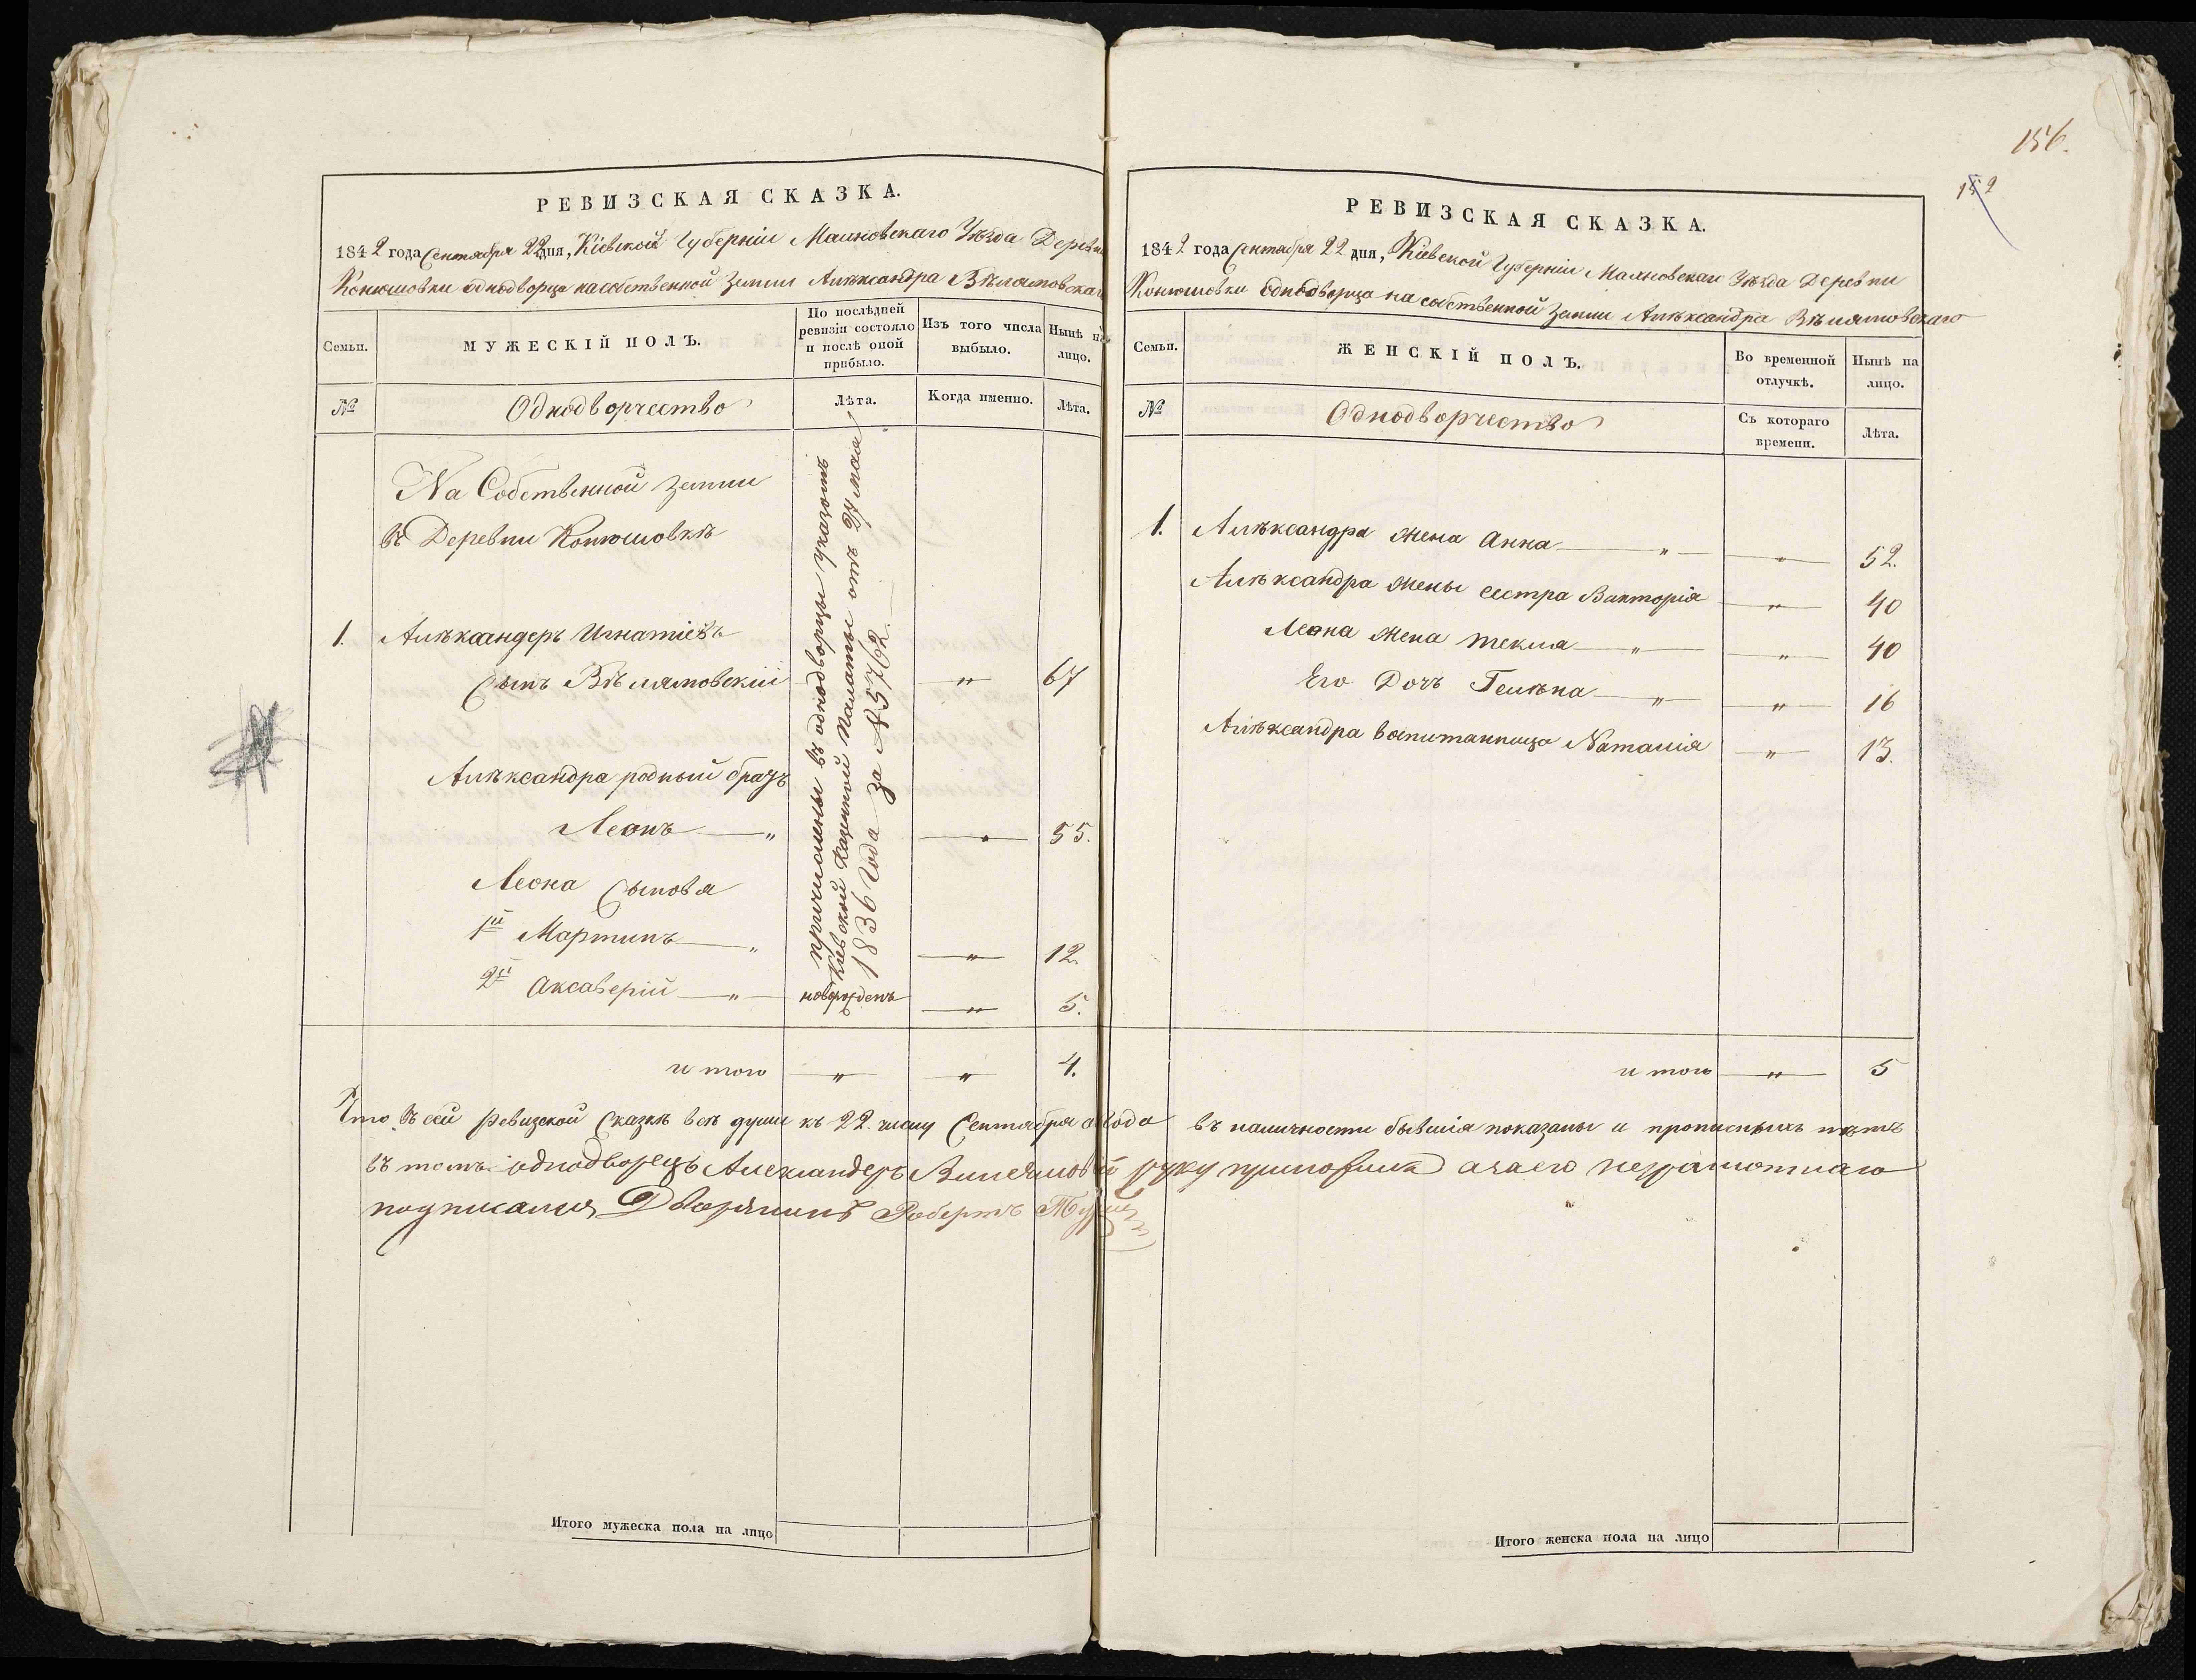 РЕВИЗСКАЯ СКАЗКА.
1842 года Сентября 22 дня, Кіевской Губерніи Махновскаго Уѣзда Деревни
Конюшовки однодворца на собственной земли Алѣксандра Вѣлямовскаго
Семьи.
МУЖЕСКІЙ ПОЛЪ.
По послѣдней ревизіи состояло и послѣ оной прибыло.
Изъ того числа выбыло.
Нынѣ на лицо.
№
Однодворчество
Лѣта.
Когда именно.
Лѣта.
На Собственной земли
въ Деревни Конюшовкѣ
1. Алѣксандеръ Игнатіевъ
сынъ Вѣлямовскій " 67
Алѣксандра родный братъ
Леонъ " " 55.
Леона Сыновя
1й Мартинъ " " 12.
2й Аксаверій " новорожденъ " 5.
причислены въ однодворцы указомъ
Кіевской Казенной Палаты отъ 27 мая
1836 года за № 5762.
и того " " 4.
РЕВИЗСКАЯ СКАЗКА.
1842 года Сентября 22 дня, Кіевской Губерніи Махновскаго Уѣзда Деревни
Конюшовки однодворца на собственной земли Алѣксандра Вѣлямовскаго
Семьи.
ЖЕНСКІЙ ПОЛЪ.
Во временной отлучкѣ.
Нынѣ на лицо.
№
Однодворчество
Съ котораго времени.
Лѣта.
1. Алѣксандра жена Анна " " 52.
Алѣксандра жены сестра Викторія " 40
Леона жена Текля " " 40
Его Дочь Гелѣна " " 16
Алѣксандра воспитанница Наталія " 13.
и того " 5
Что въ сей Ревизской Сказкѣ всѣ души къ 22. числу Сентября с. года въ наличности бывшія показаны и прописныхъ нѣтъ
въ томъ однодворецъ Александеръ руку приложилъ а за его неграмотнаго
подписался Дворянинъ Робертъ
Итого мужеска пола на лицо
Итого женска пола на лицо
156.
152